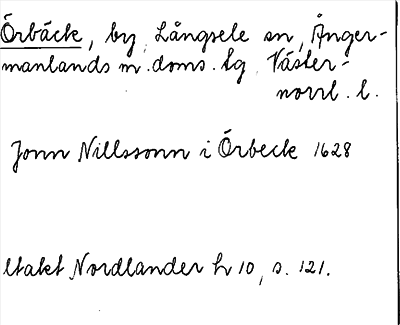 Örbäck, by, Långsele sn, Ånger-
manlands m. doms. tg, Väster-
norrl. l.
Jonn Nillssonn i Örbeck 1628
ltakt Nordlander h 10, s. 121.